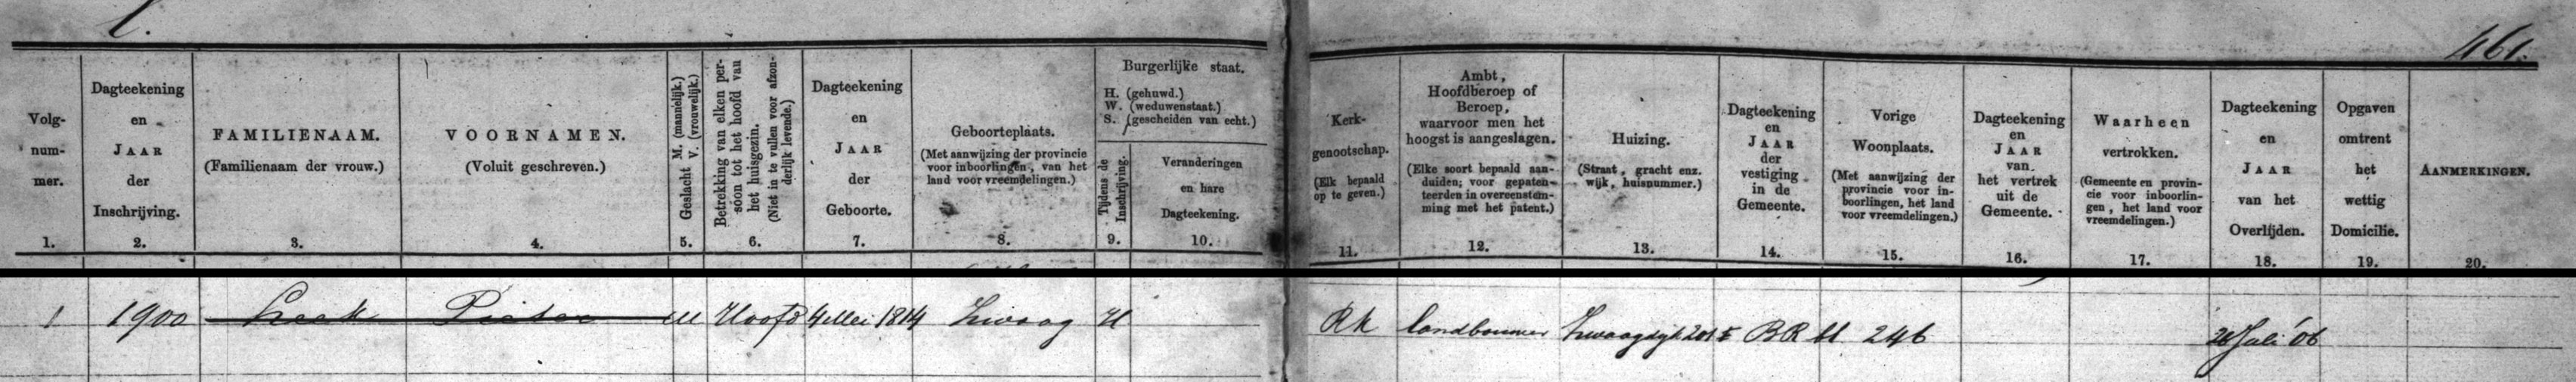 l.
461.
Volg-
num-
mer.
1.
Dagteekening
en
JAAR
der
Inschrijving.
2.
FAMILIENAAM.
(Familienaam der vrouw.)
3.
VOORNAMEN.
(Voluit geschreven.)
4.
Geslacht M. (mannelijk.)
V. (vrouwelijk.)
5.
Betrekking van elken per-
soon tot het hoofd van
het huisgezin.
(Niet in te vullen voor afzon-
derlijk levende.)
6.
Dagteekening
en
JAAR
der
Geboorte.
7.
Geboorteplaats.
(Met aanwijzing der provincie
voor inboorlingen, van het
land voor vreemdelingen.)
8.
Burgerlijke staat.
H. (gehuwd.)
W. (weduwenstaat.)
S. (gescheiden van echt.)
Tijdens de
Inschrijving.
9.
Veranderingen
en hare
Dagteekening.
10.
Kerk-
genootschap.
(Elk bepaald
op te geven.)
11.
Ambt,
Hoofdberoep of
Beroep,
waarvoor men het
hoogst is aangeslagen.
(Elke soort bepaald aan-
duiden; voor gepaten-
teerden in overeenstem-
ming met het patent.)
12.
Huizing.
(Straat, gracht enz.
wijk, huisnummer.)
13.
Dagteekening
en
JAAR
der
vestiging
in de
Gemeente.
14.
Vorige
Woonplaats.
(Met aanwijzing der
provincie voor in-
boorlingen, het land
voor vreemdelingen.)
15.
Dagteekening
en
JAAR
van
het vertrek
uit de
Gemeente.
16.
Waarheen
vertrokken.
(Gemeente en provin-
cie voor inboorlin-
gen, het land voor
vreemdelingen.)
17.
Dagteekening
en
JAAR
van het
Overlijden.
18.
Opgaven
omtrent
het
wettig
Domicilie.
19.
AANMERKINGEN.
20.
1 1900 Leek Pieter M Hoofd 4 Mei 1814 Zwaag H RK landbouwer Zwaagdijk BR bl 246 Juli '06